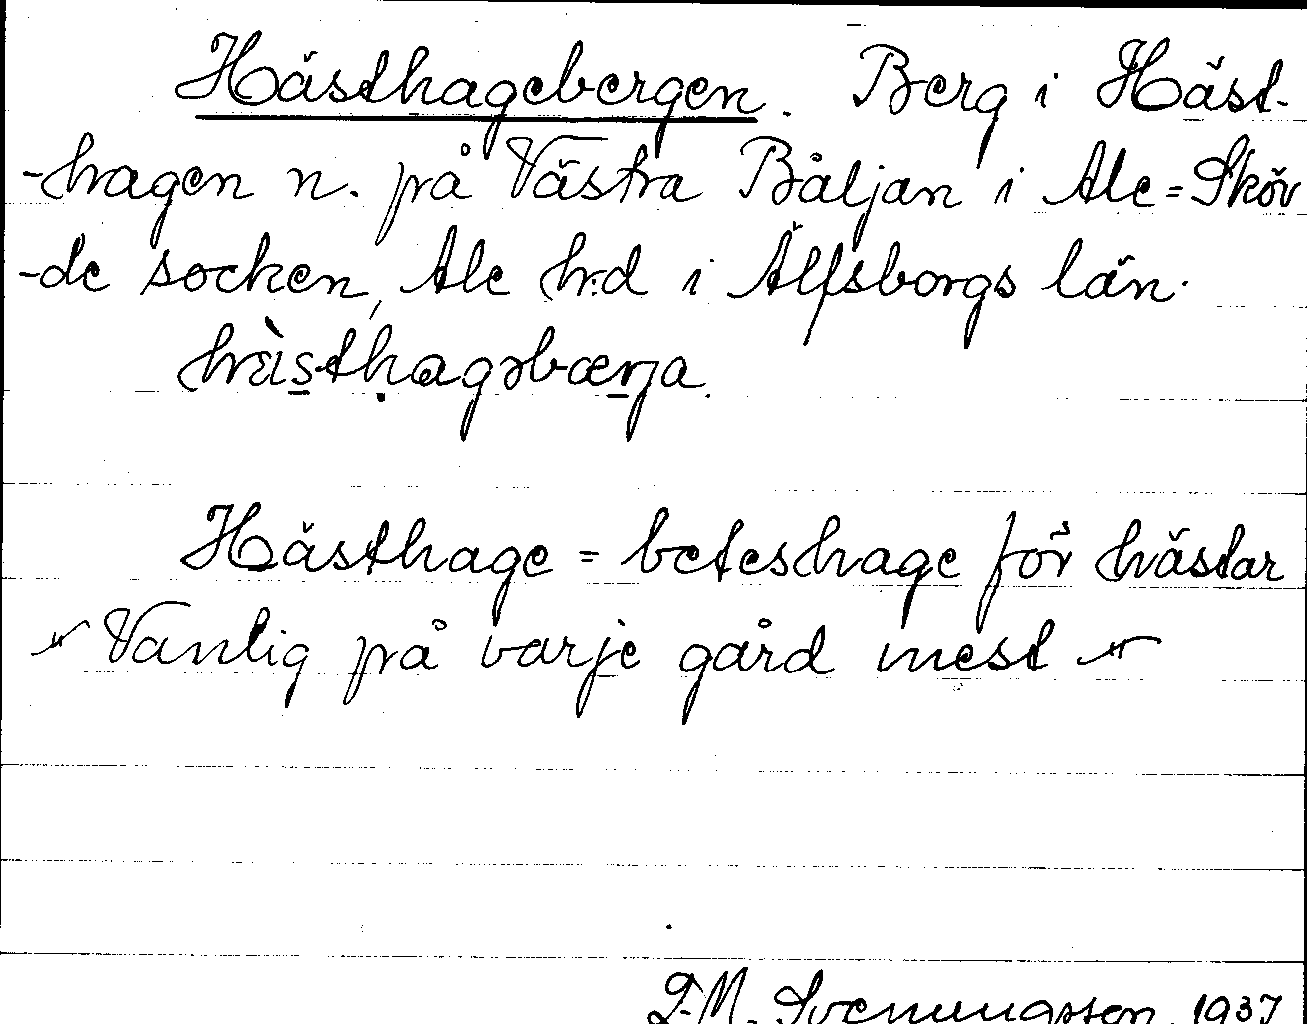 Hästhagebergen. Berg i Häst-
-hagen n. på Västra Båljan i Ale=Sköv
-de socken, Ale h:d i Älfsborgs län.
hästhagəbærja.
Hästhage = beteshage för hästar
Vanlig på varje gård mest
D.M. Svenungsson 1937